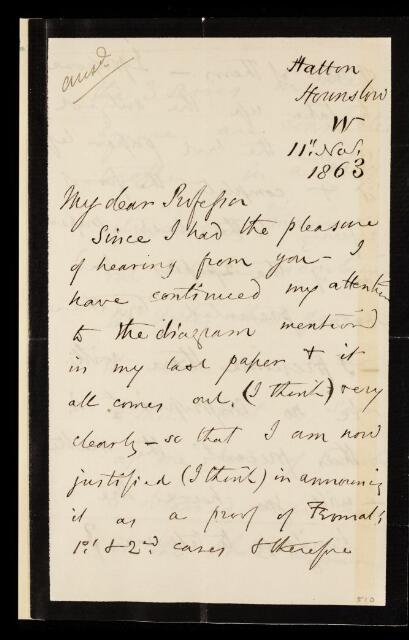 ansd
Hatton
Hounslow
W
11th Nov.
1863
My dear Professor
Since I had the pleasure
of hearing from you – I
have continued my attention
to the diagram mentiond
in my last paper & it
all comes out. (I think) very
clearly – so that I am now
justified (I think) in announcing
it as a proof of Fermat's
1st & 2nd cases & therefore
510